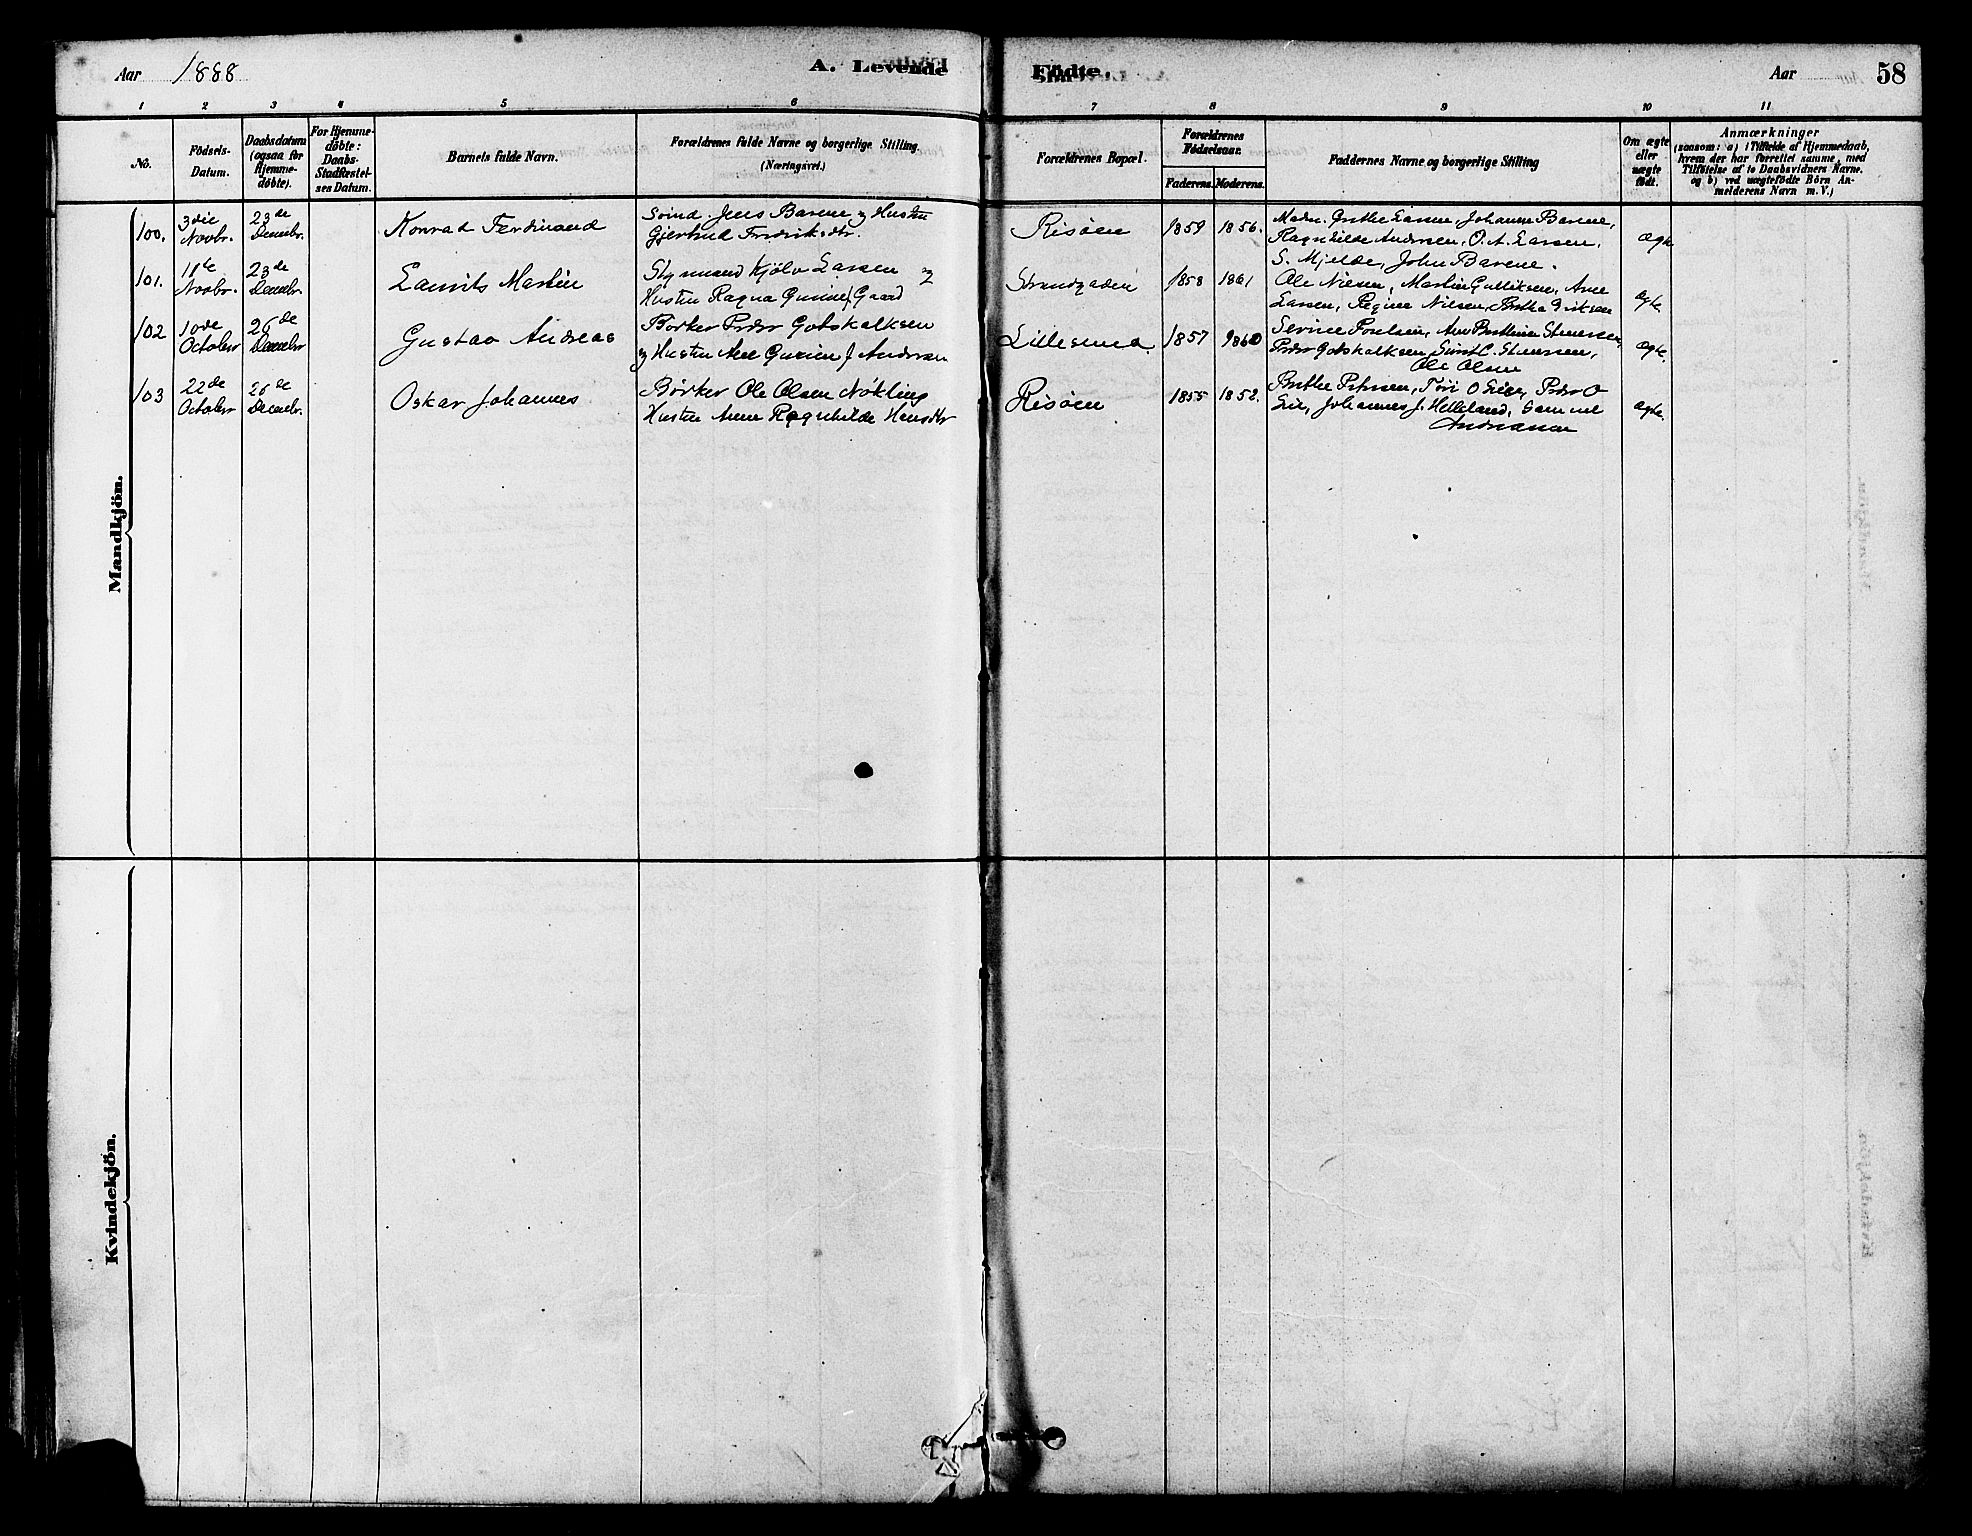 Aar 1888
A. Levende Födte.
Aar 58
1 2 3 4 5 6 7 8 9 10 11
No.
Födsels-
Datum.
Daabsdatum
(ogsaa for
Hjemme-
döbte).
For Hjemme-
döbte:
Daabs-
Stadfæstel-
ses Datum.
Barnets fulde Navn.
Forældrenes fulde Navne og borgerlige Stilling.
(Næringsvei.)
Forældrenes Bopæl.
Forældrenes
Födselsaar.
Faderens. Moderens.
Faddernes Navne og borgerlige Stilling
Om ægte
eller
uægte
födt.
Anmærkninger
(saasom: a) i Tilfælde af Hjemmedaab,
hvem der har forrettet samme, med
Tilföielse af to Daabsvidners Navne.
og b) ved uægtefödte Börn An-
melderens Navn m. V.)
Mandkjön.
100. 3die Novbr. 23de Decembr. Konrad Ferdinand
Jens Barene og Hustru
Gjertrud Fredriksdtr.
Risöen 1859 1856.
Grethe Larsen, Johanne Barene,
Ragnhilde Andersen, O. A. Larsen,
S. Mjelde, John Barene.
ægte
101. 11te Novbr. 23de Decembr. Laurits Martin
Styrmand Kjölv Larsen og
Hustru Ragna Gurine f. Gaard
Strandgaden 1858 1861
Ole Nilsen, Martin Gulliksen, Ane
Larsen, Regine Nilsen, Bertha Eriksen
ægte
102 10de October 26de Decembr. Gustav Andreas
Bödker Peder Gotskalksen
og Hustru Ane Gurine f. Andersen
Lillesund. 1857 1860
Serine Poulsen, Ane Berthine
Peder Gotskalksen,
Ole Olsen
ægte.
103 22de October 26de Decembr. Oskar Johannes
Bödker Ole Olsen Nökling
Hustru Anne Ragnhilde Hansdtr
Risöen 1855 1852.
Berthe Petersen, O Lie, Peder O
Lie, Johannes J. Helleland, Samuel
Andreassen
ægte.
Kvindekjön.